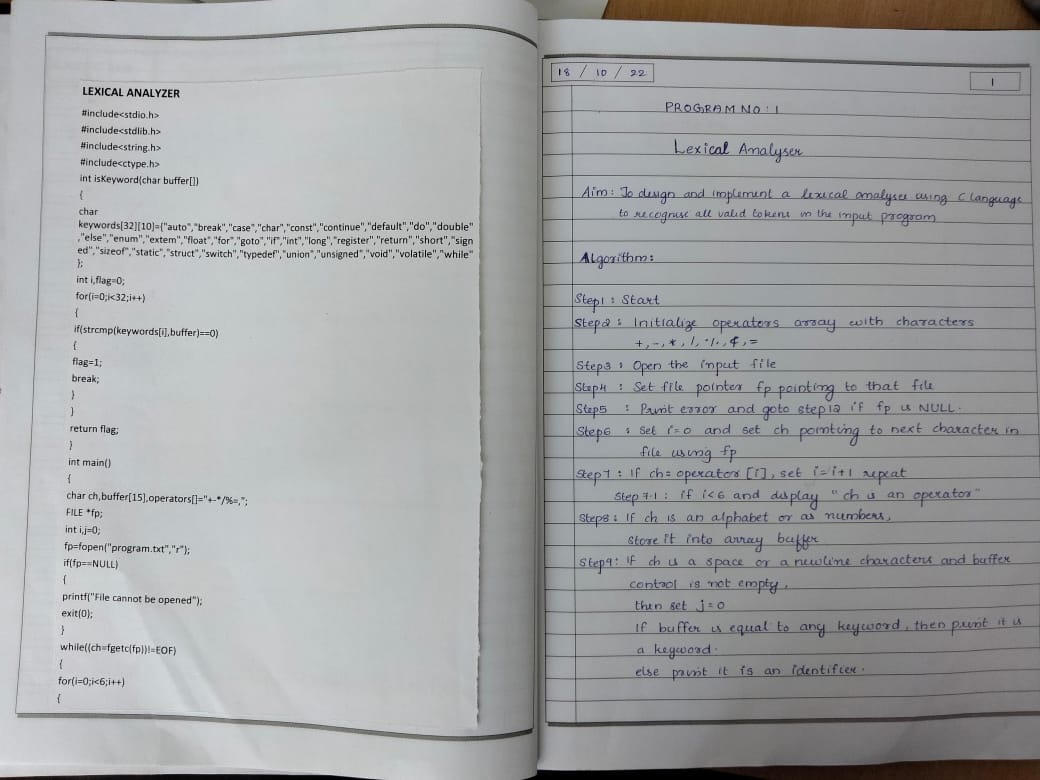 LEXICAL ANALYZER
#include<stdio.h>
#include<stdlib.h>
#include<string.h>
#include<ctype.h>
int isKeyword(char buffer[])
{
char
keywords[32][10]={"auto","break","case","char","const","continue","default","do","double"
,"else","enum","extern","float","for","goto","if","int","long","register","return","short","sign
ed","sizeof","static","struct","switch","typedef","union","unsigned","void","volatile","while"
};
int i,flag=0;
for(i=0;i<32;i++)
{
if(strcmp(keywords[i],buffer)==0)
{
flag=1;
break;
}
}
return flag;
}
int main()
{
char ch,buffer[15],operators[]="+-*/%=,";
FILE *fp;
int i,j=0;
fp=fopen("program.txt","r");
if(fp==NULL)
{
printf("File cannot be opened");
exit(0);
}
while((ch=fgetc(fp))!=EOF)
{
for(i=0;i<6;i++)
{
18 / 10 / 22
1
PROGRAM NO : 1
Lexical Analyser
Aim : To design and implement a lexical analyser using C language
to recognise all valid tokens in the input program
Algorithm :
Step1 : Start
Step2 : Initialize operators array with characters
+, -, *, /, %, =
Step3 : Open the input file
Step4 : Set file pointer fp pointing to that file
Step5 : Print error and goto step12 if fp is NULL.
Step6 : Set i=0 and set ch pointing to next character in
file using fp
Step7 : If ch= operator [i], set i=i+1 repeat
Step 7.1 : if i<6 and display "ch is an operator"
Step8 : If ch is an alphabet or as numbers,
store it into array buffer
Step9 : If ch is a space or a newline characters and buffer
control is not empty,
then set j=0
If buffer is equal to any keyword, then print it is
a keyword.
else print it is an identifier.